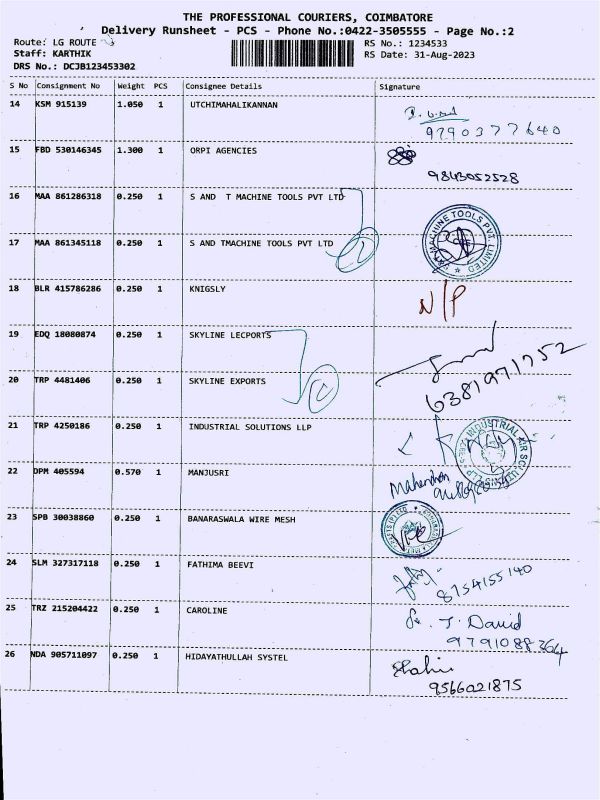 THE PROFESSIONAL COURIERS, COIMBATORE
Delivery Runsheet - PCS - Phone No.:0422-3505555 - Page No.:2
Route: LG ROUTE RS No.: 1234533
Staff: KARTHIK RS Date: 31-Aug-2023
DRS No.: DCJB123453302
S No Consignment No Weight PCS Consignee Details Signature
14 KSM 915139 1.050 1 UTCHIMAHALIKANNAN
9790377640
15 FBD 530146345 1.300 1 ORPI AGENCIES
9843052528
16 MAA 861286318 0.250 1 S AND T MACHINE TOOLS PVT LTD
MACHINE TOOLS PVT LIMITED
17 MAA 861345118 0.250 1 S AND TMACHINE TOOLS PVT LTD
2
18 BLR 415786286 0.250 1 KNIGSLY N/P
19 EDQ 18080874 0.250 1 SKYLINE LECPORTS
20 TRP 4481406 0.250 1 SKYLINE EXPORTS 6381971752
21 TRP 4250186 0.250 1 INDUSTRIAL SOLUTIONS LLP
INDUSTRIAL AIR
22 DPM 405594 0.570 1 MANJUSRI Mahendran
23 SPB 30038860 0.250 1 BANARASWALA WIRE MESH
24 SLM 327317118 0.250 1 FATHIMA BEEVI 8754155140
25 TRZ 215204422 0.250 1 CAROLINE J. David
9791088364
26 NDA 905711097 0.250 1 HIDAYATHULLAH SYSTEL Shahi
9566021875